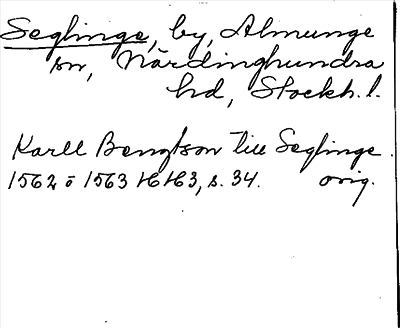 Seglinge, by, Almunge
sn, Närdinghundra
hd, Stockh. l.
Karll Bengtson till Seglinge.
1562 o 1563 HH3, s. 34. orig.